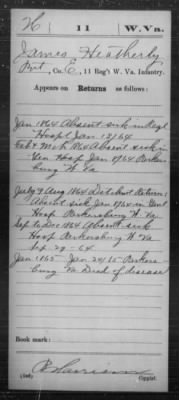 H | 11 | W. Va.
James Heatherly
Pvt., Co. E, 11 Reg't W. Va. Infantry.
Appears on Returns as follows:
Jan 1864 Absent sick in Regl
Hospl Jan 12/64
Feb & Mch 1864 Absent sick in
Gen Hosp Jan 9/64 Parkers
burg W Va
July & Aug 1864 Detchmt Return;
Absent sick Jan 9/64 in Genl
Hosp Parkersburg W. Va.
Sep to Dec 1864 Absent sick
Hosp Parkersburg W Va
Sep 29-64
Jan 1865 Jan 24/65 Parkers
burg Va Died of disease
Book mark:
(546)
Copyist.